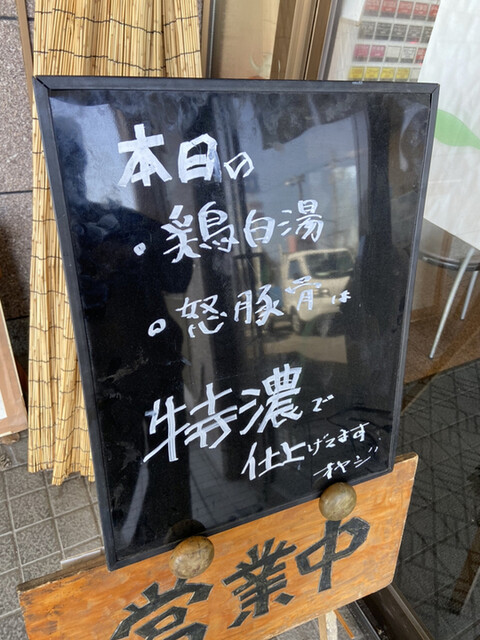 本日の
・鶏白湯
・怒豚骨は
特濃で
仕上げてます
オヤジ
営業中